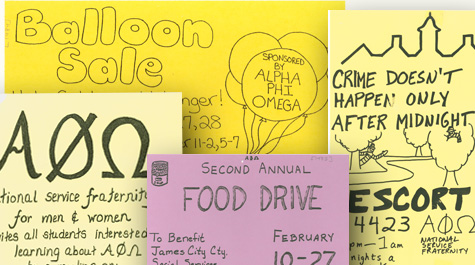 Balloon
Sale
SPONSORED
BY
ALPHA
PHI
OMEGA
27, 28
11-2, 5-7
CRIME DOESN'T
HAPPEN ONLY
AFTER MIDNIGHT
ESCORT
4423 ΑΦΩ
NATIONAL
SERVICE
FRATERNITY
1am
nights a
ΑΦΩ
tional service fraternity
for men & women
ites all students interested
learning about ΑΦΩ
ΑΦΩ
SECOND ANNUAL
FOOD DRIVE
To Benefit
James City Cty.
Social Services
FEBRUARY
10-27